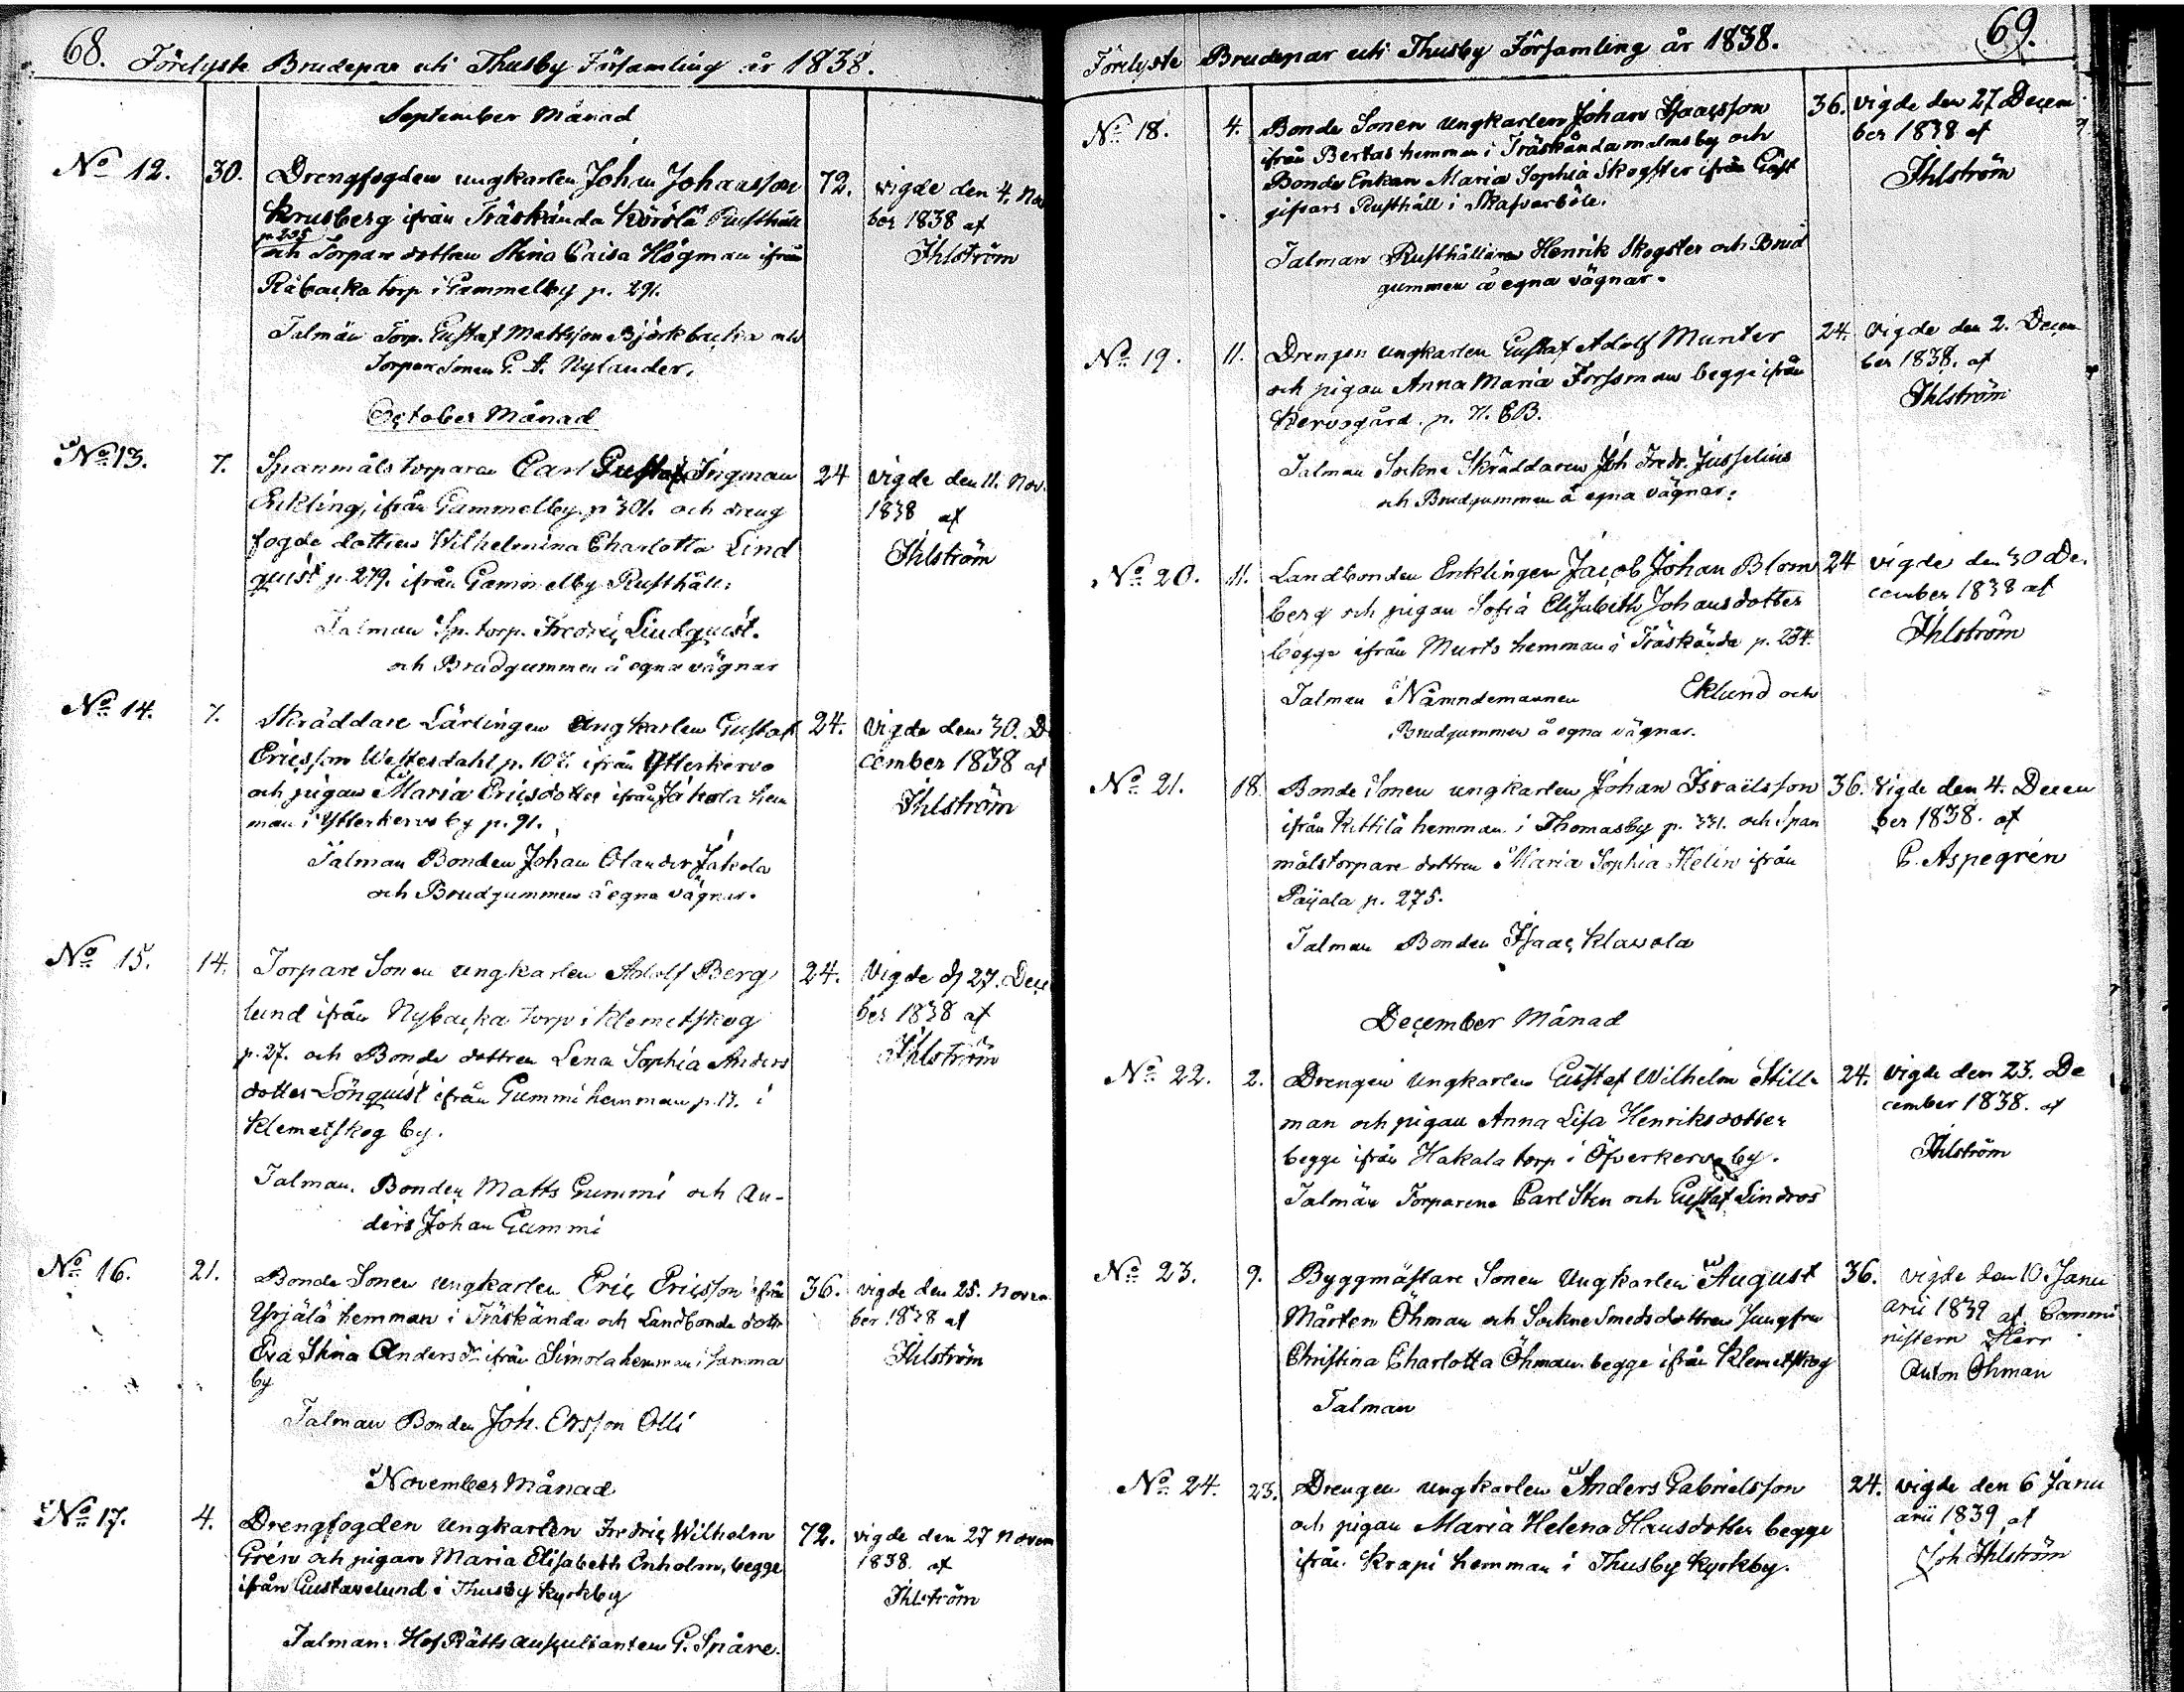 68. Förelyste Brudepar uti Thusby Församling år 1838.
September Månad
No 12. 30. Drengfogden ungkarlen Johan Johansson 72. vigde den 4. No
Krusberg ifrån Träskända Körölä Rusthåll ber 1838 af
p. 205
och Torpare dottren Stina Caisa Högman ifrån Ihlström
Råbacka torp i Gammelby p. 291.
Talmän Torp. Gustaf Mattsson Björkbacka och
Torpare Sonen G. A. Nylander.
October Månad
No 13. 7. Spanmåls torparen Carl Gustaf Ingman 24 vigde den 11. Nov.
Enkling, ifrån Gammelby p 301. och dreng 1838 af
fogde dottren Wilhelmina Charlotta Lind Ihlström
quist p. 279. ifrån Gammelby Rusthåll:
Talman Sp. torp. Fredric Lindquist.
och Brudgummen å egna vägnar
No 14. 7. Skräddare Lärlingen ungkarlen Gustaf 24. Vigde den 30. De
Ericsson Westerdahl p. 107. ifrån Ytterkervo cember 1838 af
och pigan Maria Ericsdotter ifrån Jakola hem Ihlström
man i Ytterkervo by p. 91.
Talman Bonden Johan Olander Jakola
och Brudgummen å egna vägnar.
No 15. 14. Torpare Sonen ungkarlen Adolf Berg 24. Vigde d. 27. Dece
lund ifrån Nybacka torp i Klemetskog ber 1838 af
p. 27. och Bonde dottren Lena Sophia Anders Ihlström
dotter Lönquist ifrån Gummi hemman p. 17. i
Klemetskog by.
Talman. Bonden Matts Gummi och An-
ders Johan Gummi
No 16. 21. Bonde Sonen ungkarlen Eric Ericsson ifrån 36. vigde den 25. Novem
Yrjälä hemman i Träskända och Landbonde dottr ber 1838 af
Eva Stina Anders dr ifrån Simola hemman i samma Ihlström
by
Talman Bonden Joh. Ersson Olli
November Månad
No 17. 4. Drengfogden Ungkarlen Fredric Wilhelm 72. vigde den 27 Novem
Grén och pigan Maria Elisabeth Enholm, begge 1838. af
ifrån Gustavelund i Thusby Kyrkby Ihlström
Talman: Hof Rätts auscultanten G. Spåre.
Förelyste Brudepar uti Thusby Församling år 1838. 69.
No 18. 4. Bonde Sonen ungkarlen Johan Isaacsson 36. Vigde den 27 Decem
ifrån Bertas hemman i Träskända malmsby och ber 1838 af
Bonde Enkan Maria Sophia Skogster ifrån Gäst Ihlström
gifvars Rusthåll i Skafvarböle.
Talman Rusthållaren Henrik Skogster och Brud
gummen å egna vägnar.
No 19. 11. Drengen ungkarlen Gustaf Adolf Munter 24. Vigde den 2. Decem
och pigan Anna Maria Forssman begge ifrån ber 1838. af
Kervogård. p. 71. CB. Ihlström
Talman Sockne Skräddaren Joh Fredr. Jusselius
och Brudgummen å egna vägnar:
No 20. 11. Landbonden Enklingen Jacob Johan Blom 24 vigde den 30 De.
berg och pigan Sofia Elisabeth Johansdotter cember 1838 af
begge ifrån Murts hemman i Träskända p. 234. Ihlström
Talman Nämndemannen Eklund och
Brudgummen å egna vägnar.
No 21. 18 Bonde Sonen ungkarlen Johan Israelsson 36. Vigde den 4. Decem
ifrån Kittilä hemman i Thomasby p. 331. och Span ber 1838. af
målstorpare dottren Maria Sophia Helin ifrån C. Aspegrén
Päijälä p. 275.
Talman Bonden Isaac Klavola
December Månad
No 22. 2. Drengen Ungkarlen Gustaf Wilhelm Still- 24. Vigde den 23. De
man och pigan Anna Lisa Henriksdotter cember 1838. af
begge ifrån Hakala torp i Öfverkervo by. Ihlström
Talmän Torparene Carl Sten och Gustaf Lindros
No 23. 9. Byggmästare Sonen Ungkarlen August 36. vigde den 10. Janu
Mårten Öhman och Sockne Smeds dottren Jungfru arii 1839 af Commi
Christina Charlotta Öhman. begge ifrån Klemetskog nistern Herr
Talman Anton Öhman
No 24. 23. Drengen ungkarlen Anders Gabrielsson 24. vigde den 6 Janu
och pigan Maria Helena Hansdotter begge arii 1839 af
ifrån Krapi hemman i Thusby Kyrkby. Joh Ihlström